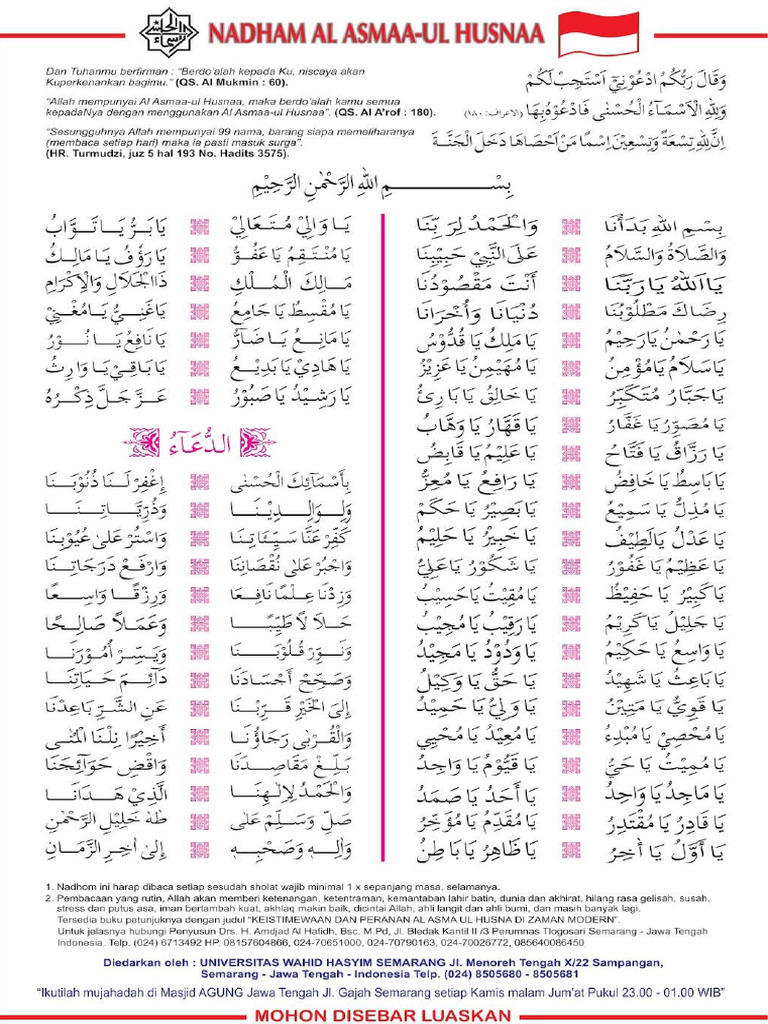 NADHAM AL ASMAA-UL HUSNAA
Dan Tuhanmu berfirman : "Berdo'alah kepada Ku, niscaya akan
Kuperkenankan bagimu." (QS. Al Mukmin : 60).
"Allah mempunyai Al Asmaa-ul Husnaa, maka berdo'alah kamu semua
kepadaNya dengan menggunakan Al Asmaa-ul Husnaa". (QS. Al A'rof : 180).
"Sesungguhnya Allah mempunyai 99 nama, barang siapa memeliharanya
(membaca setiap hari) maka ia pasti masuk surga".
(HR. Turmudzi, juz 5 hal 193 No. Hadits 3575).
وَقَالَ رَبُّكُمُ ادْعُوْنِيْٓ اَسْتَجِبْ لَكُمْ
وَلِلّٰهِ الْاَسْمَآءُ الْحُسْنٰى فَادْعُوْهُ بِهَا (الاعراف: ١٨٠)
اِنَّ لِلّٰهِ تِسْعَةً وَتِسْعِيْنَ اِسْمًا مَنْ اَحْصَاهَا دَخَلَ الْجَنَّةَ
بِسْـــمِ اللّٰهِ الرَّحْمٰنِ الرَّحِيْمِ
بِسْمِ اللّٰهِ بَدَأْنَا وَالْحَمْدُ لِرَبِّنَا
وَالصَّلَاةُ وَالسَّلَامُ عَلَى النَّبِيْ حَبِيْبِنَا
يَا اَللّٰهُ يَا رَبَّنَا أَنْتَ مَقْصُوْدُنَا
رِضَاكَ مَطْلُوْبُنَا دُنْيَانَا وَأُخْرَانَا
يَا رَحْمٰنُ يَا رَحِيْمُ يَا مَلِكُ يَا قُدُّوْسُ
يَا سَلَامُ يَا مُؤْمِنُ يَا مُهَيْمِنُ يَا عَزِيْزُ
يَا جَبَّارُ مُتَكَبِّرُ يَا خَالِقُ يَا بَارِئُ
يَا مُصَوِّرُ يَا غَفَّارُ يَا قَهَّارُ يَا وَهَّابُ
يَا رَزَّاقُ يَا فَتَّاحُ يَا عَلِيْمُ يَا قَابِضُ
يَا بَاسِطُ يَا خَافِضُ يَا رَافِعُ يَا مُعِزُّ
يَا مُذِلُّ يَا سَمِيْعُ يَا بَصِيْرُ يَا حَكَمُ
يَا عَدْلُ يَا لَطِيْفُ يَا خَبِيْرُ يَا حَلِيْمُ
يَا عَظِيْمُ يَا غَفُوْرُ يَا شَكُوْرُ يَا عَلِيُّ
يَا كَبِيْرُ يَا حَفِيْظُ يَا مُقِيْتُ يَا حَسِيْبُ
يَا جَلِيْلُ يَا كَرِيْمُ يَا رَقِيْبُ يَا مُجِيْبُ
يَا وَاسِعُ يَا حَكِيْمُ يَا وَدُوْدُ يَا مَجِيْدُ
يَا بَاعِثُ يَا شَهِيْدُ يَا حَقُّ يَا وَكِيْلُ
يَا قَوِيُّ يَا مَتِيْنُ يَا وَلِيُّ يَا حَمِيْدُ
يَا مُحْصِيْ يَا مُبْدِءُ يَا مُعِيْدُ يَا مُحْيِيْ
يَا مُمِيْتُ يَا حَيُّ يَا قَيُّوْمُ يَا وَاجِدُ
يَا مَاجِدُ يَا وَاحِدُ يَا أَحَدُ يَا صَمَدُ
يَا قَادِرُ يَا مُقْتَدِرُ يَا مُقَدِّمُ يَا مُؤَخِّرُ
يَا أَوَّلُ يَا اٰخِرُ يَا ظَاهِرُ يَا بَاطِنُ
يَا وَالِيْ مُتَعَالِيْ يَا بَرُّ يَا تَوَّابُ
يَا مُنْتَقِمُ يَا عَفُوُّ يَا رَؤُفُ يَا مَالِكُ
مَالِكَ الْمُلْكِ ذَا الْجَلَالِ وَالْاِكْرَامِ
يَا مُقْسِطُ يَا جَامِعُ يَا غَنِيُّ يَا مُغْنِيْ
يَا مَانِعُ يَا ضَآرُّ يَا نَافِعُ يَا نُوْرُ
يَا هَادِيْ يَا بَدِيْعُ يَا بَاقِيْ يَا وَارِثُ
يَا رَشِيْدُ يَا صَبُوْرُ عَزَّ جَلَّ ذِكْرُهُ
الدُّعَآءُ
بِأَسْمَائِكَ الْحُسْنٰى إِغْفِرْ لَنَا ذُنُوْبَنَا
وَلِوَالِدِيْنَا وَذُرِّيَّاتِنَا
كَفِّرْ عَنَّا سَيِّئَاتِنَا وَاسْتُرْ عَلٰى عُيُوْبِنَا
وَاجْبُرْ عَلٰى نُقْصَانِنَا وَارْفَعْ دَرَجَاتِنَا
وَزِدْنَا عِلْمًا نَافِعَا وَرِزْقًا وَاسِعًا
حَلَالًا طَيِّبًا وَعَمَلًا صَالِحًا
وَنَوِّرْ قُلُوْبَنَا وَيَسِّرْ أُمُوْرَنَا
وَصَحِّحْ أَجْسَادَنَا دَآئِمَ حَيَاتِنَا
إِلَى الْخَيْرِ قَرِّبْنَا عَنِ الشَّرِّ بَاعِدْنَا
وَالْقُرْبٰى رَجَاؤُنَا أَخِيْرًا نِلْنَا الْمُنٰى
بَلِّغْ مَقَاصِدَنَا وَاقْضِ حَوَائِجَنَا
وَالْحَمْدُ لِإِلٰهِنَا الَّذِيْ هَدَانَا
صَلِّ وَسَلِّمْ عَلٰى طٰهٰ خَلِيْلِ الرَّحْمٰنِ
وَاٰلِهِ وَصَحْبِهِ إِلٰى اٰخِرِ الزَّمَانِ
1. Nadhom ini harap dibaca setiap sesudah sholat wajib minimal 1 x sepanjang masa, selamanya.
2. Pembacaan yang rutin, Allah akan memberi ketenangan, ketentraman, kemantaban lahir batin, dunia dan akhirat, hilang rasa gelisah, susah,
stress dan putus asa, iman bertambah kuat, akhlaq makin baik, dicintai Allah, ahli langit dan ahli bumi, dan masih banyak lagi.
Tersedia buku petunjuknya dengan judul "KEISTIMEWAAN DAN PERANAN AL ASMA UL HUSNA DI ZAMAN MODERN".
Untuk jelasnya hubungi Penyusun Drs. H. Amdjad Al Hafidh, Bsc. M.Pd, Jl. Bledak Kantil II /3 Perumnas Tlogosari Semarang - Jawa Tengah
Indonesia. Telp. (024) 6713492 HP. 08157604866, 024-70651000, 024-70790163, 024-70026772, 085640086450
Diedarkan oleh : UNIVERSITAS WAHID HASYIM SEMARANG Jl. Menoreh Tengah X/22 Sampangan,
Semarang - Jawa Tengah - Indonesia Telp. (024) 8505680 - 8505681
"Ikutilah mujahadah di Masjid AGUNG Jawa Tengah Jl. Gajah Semarang setiap Kamis malam Jum'at Pukul 23.00 - 01.00 WIB"
MOHON DISEBAR LUASKAN